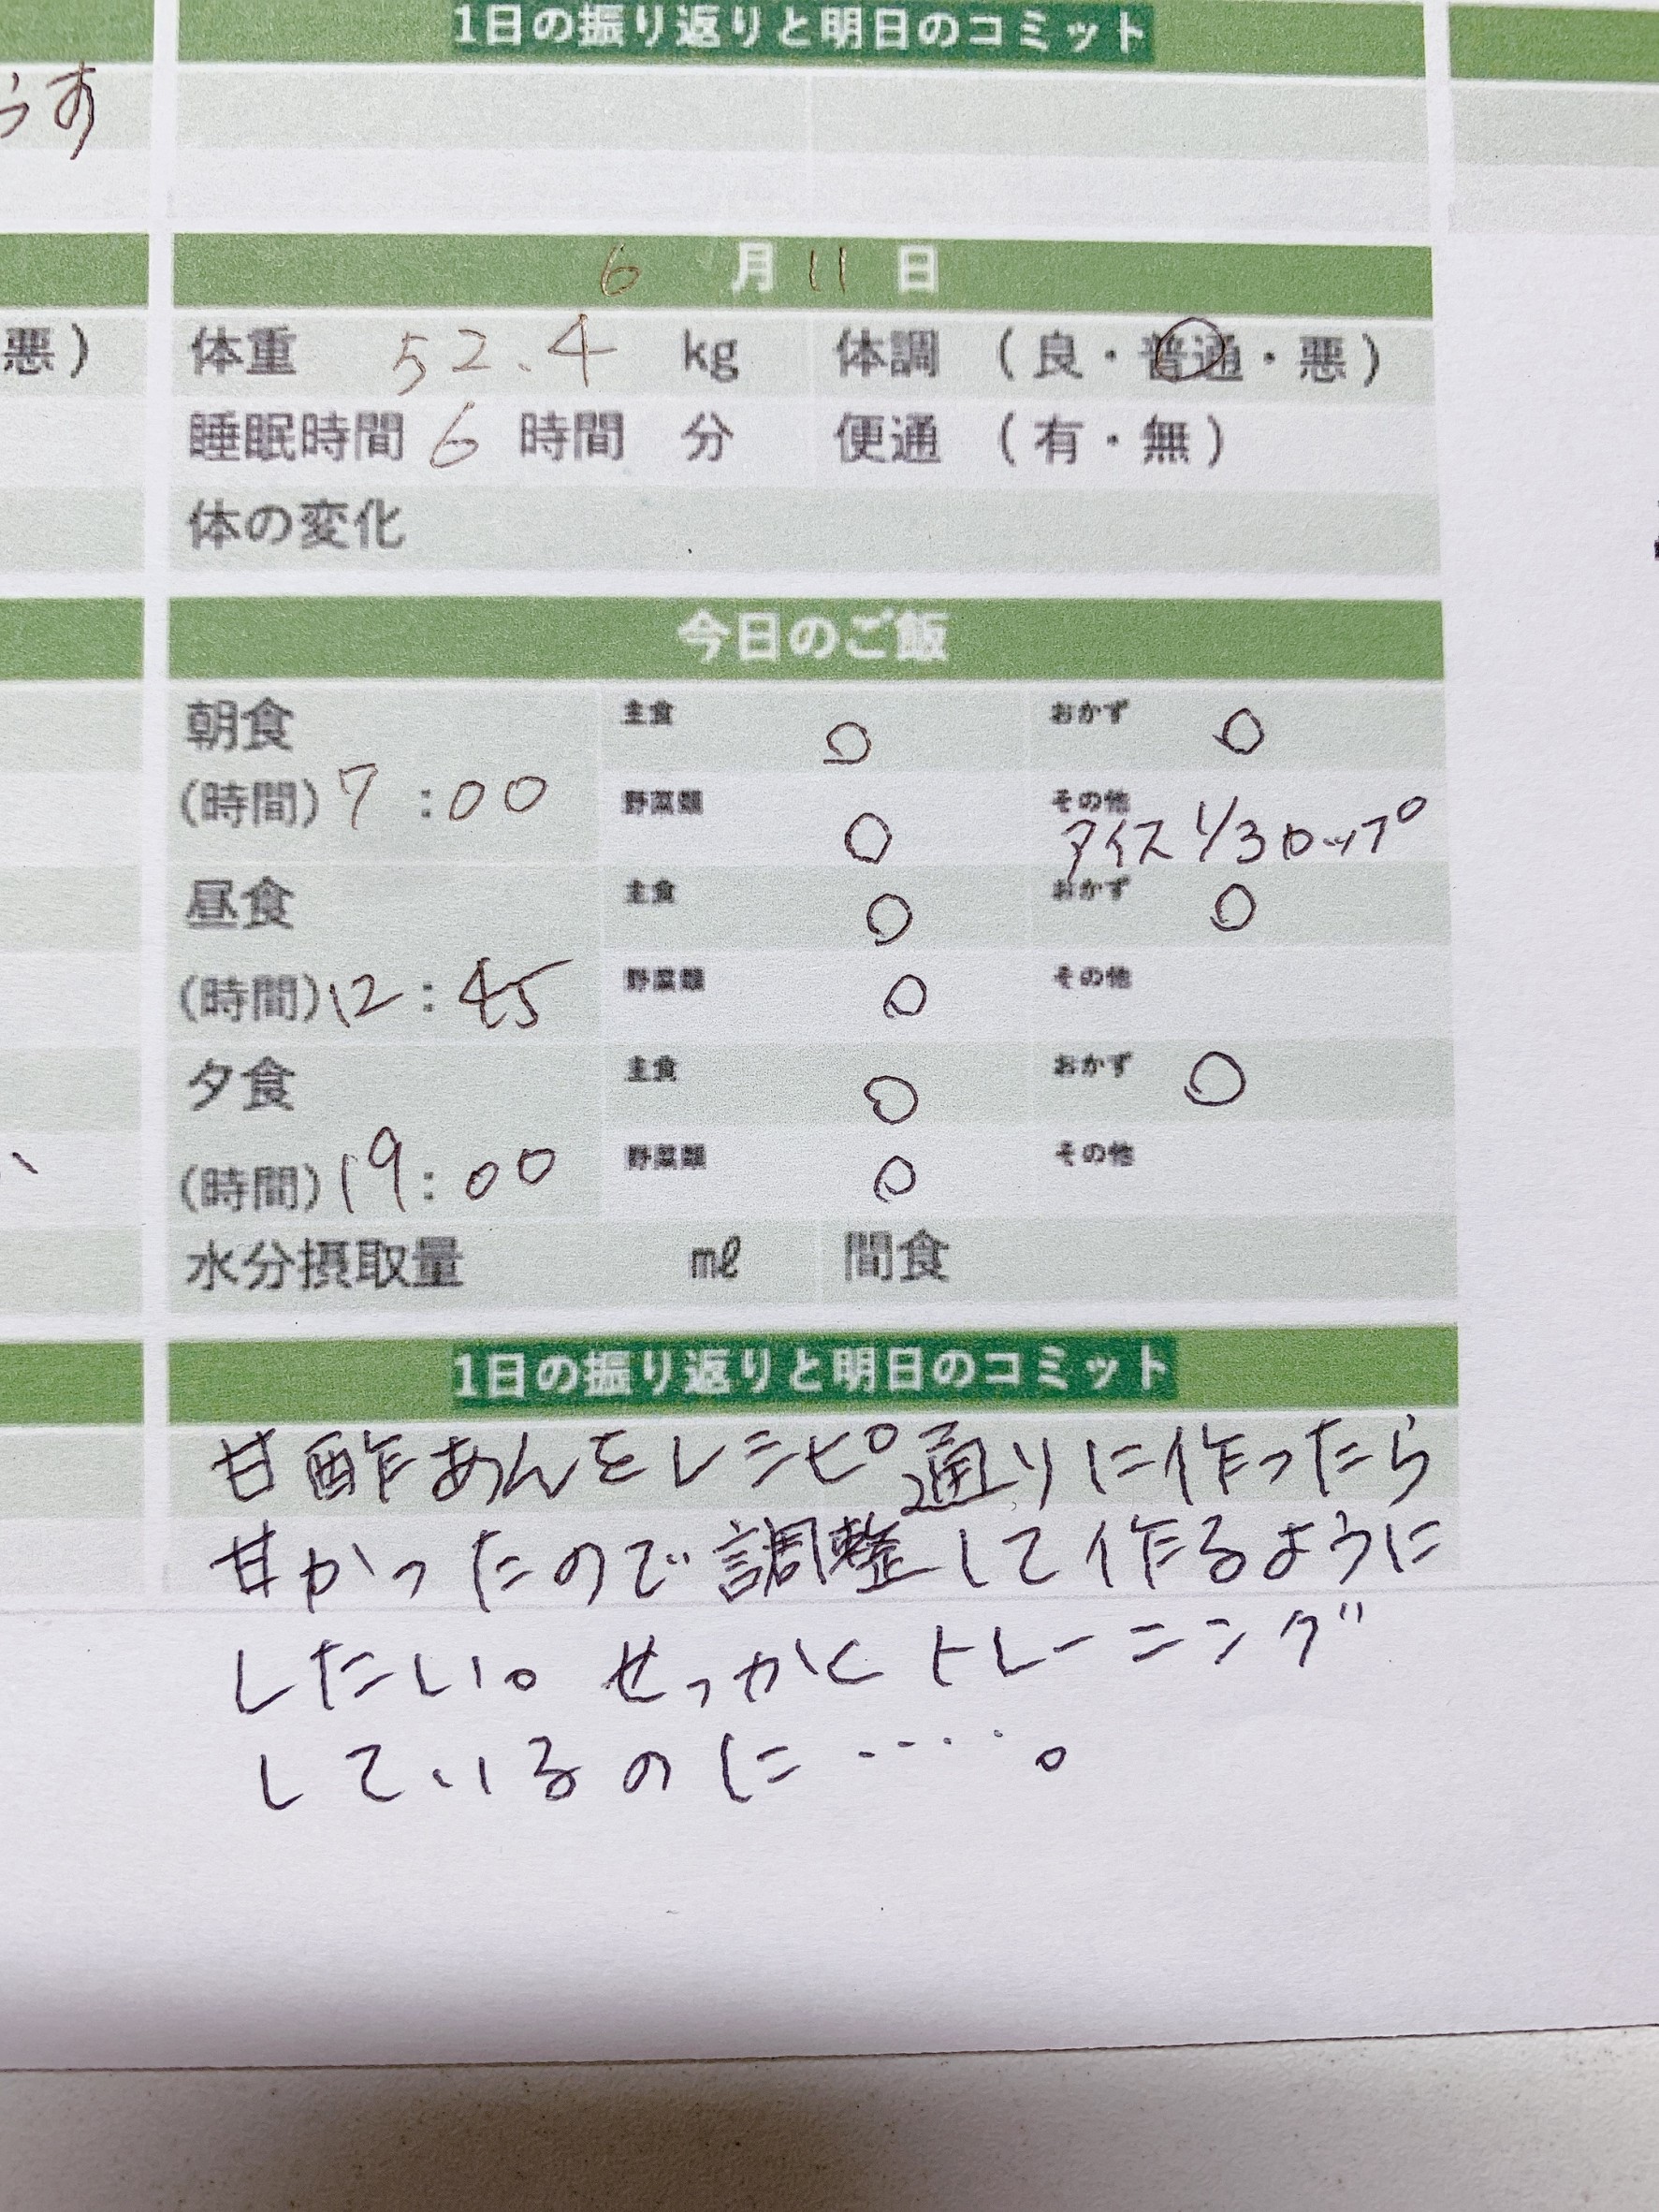 1日の振り返りと明日のコミット
うす
6 月 11 日
悪)
体重 52.4 kg 体調 (良・普通・悪)
睡眠時間 6 時間 分 便通 (有・無)
体の変化
今日のご飯
朝食 主食 ○ おかず ○
(時間) 7:00 野菜類 ○ その他 アイス 1/3カップ
昼食 主食 ○ おかず ○
(時間) 12:45 野菜類 ○ その他
夕食 主食 ○ おかず ○
(時間) 19:00 野菜類 ○ その他
水分摂取量 ml 間食
1日の振り返りと明日のコミット
甘酢あんをレシピ通りに作ったら
甘かったので調整して作るように
したい。せっかくトレーニング
しているのに・・・・・。